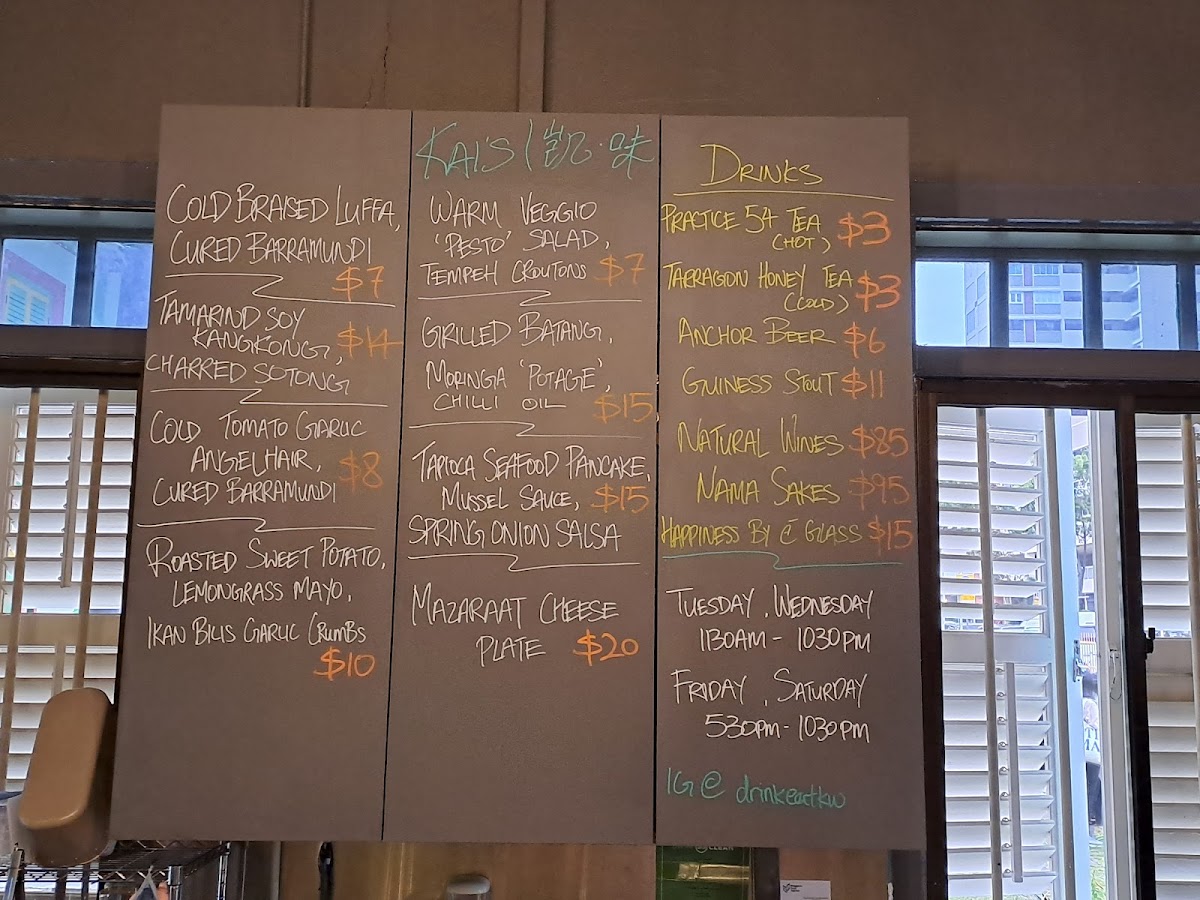 COLD BRAISED LUFFA,
CURED BARRAMUNDI
$7
TAMARIND SOY
KANGKONG, $14
CHARRED SOTONG
COLD TOMATO GARLIC
ANGELHAIR, $8
CURED BARRAMUNDI
ROASTED SWEET POTATO,
LEMONGRASS MAYO,
IKAN BILIS GARLIC CRUMBS
$10
KAI'S | 凯·味
WARM VEGGIO
'PESTO' SALAD,
TEMPEH CROUTONS $7
GRILLED BATANG,
MORINGA 'POTAGE',
CHILLI OIL $15
TAPIOCA SEAFOOD PANCAKE,
MUSSEL SAUCE, $15
SPRING ONION SALSA
MAZARAAT CHEESE
PLATE $20
DRINKS
PRACTICE 54 TEA
(HOT) $3
TARRAGION HONEY TEA
(COLD) $3
ANCHOR BEER $6
GUINESS STOUT $11
NATURAL WINES $85
NAMA SAKES $95
HAPPINESS BY C̄ GLASS $15
TUESDAY, WEDNESDAY
1130AM - 1030PM
FRIDAY, SATURDAY
530PM - 1030PM
IG @ drinkeatkw